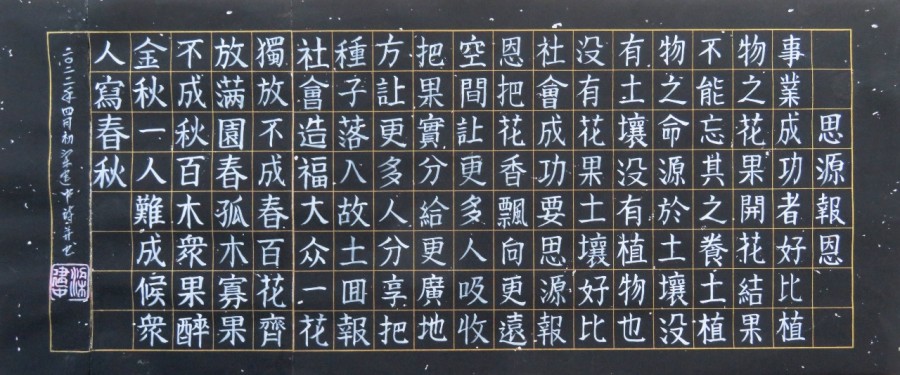 思源報恩
事業成功者好比植
物之花果開花結果
不能忘其之養土植
物之命源於土壤没
有土壤没有植物也
没有花果土壤好比
社會成功要思源報
恩把花香飄向更遠
空間让更多人吸收
把果實分給更廣地
方让更多人分享把
種子落入故土囬報
社會造福大众一花
獨放不成春百花齊
放满園春孤木寡果
不成秋百木衆果醉
金秋一人難成候衆
人寫春秋
二〇二二年四月初 建中詩并书